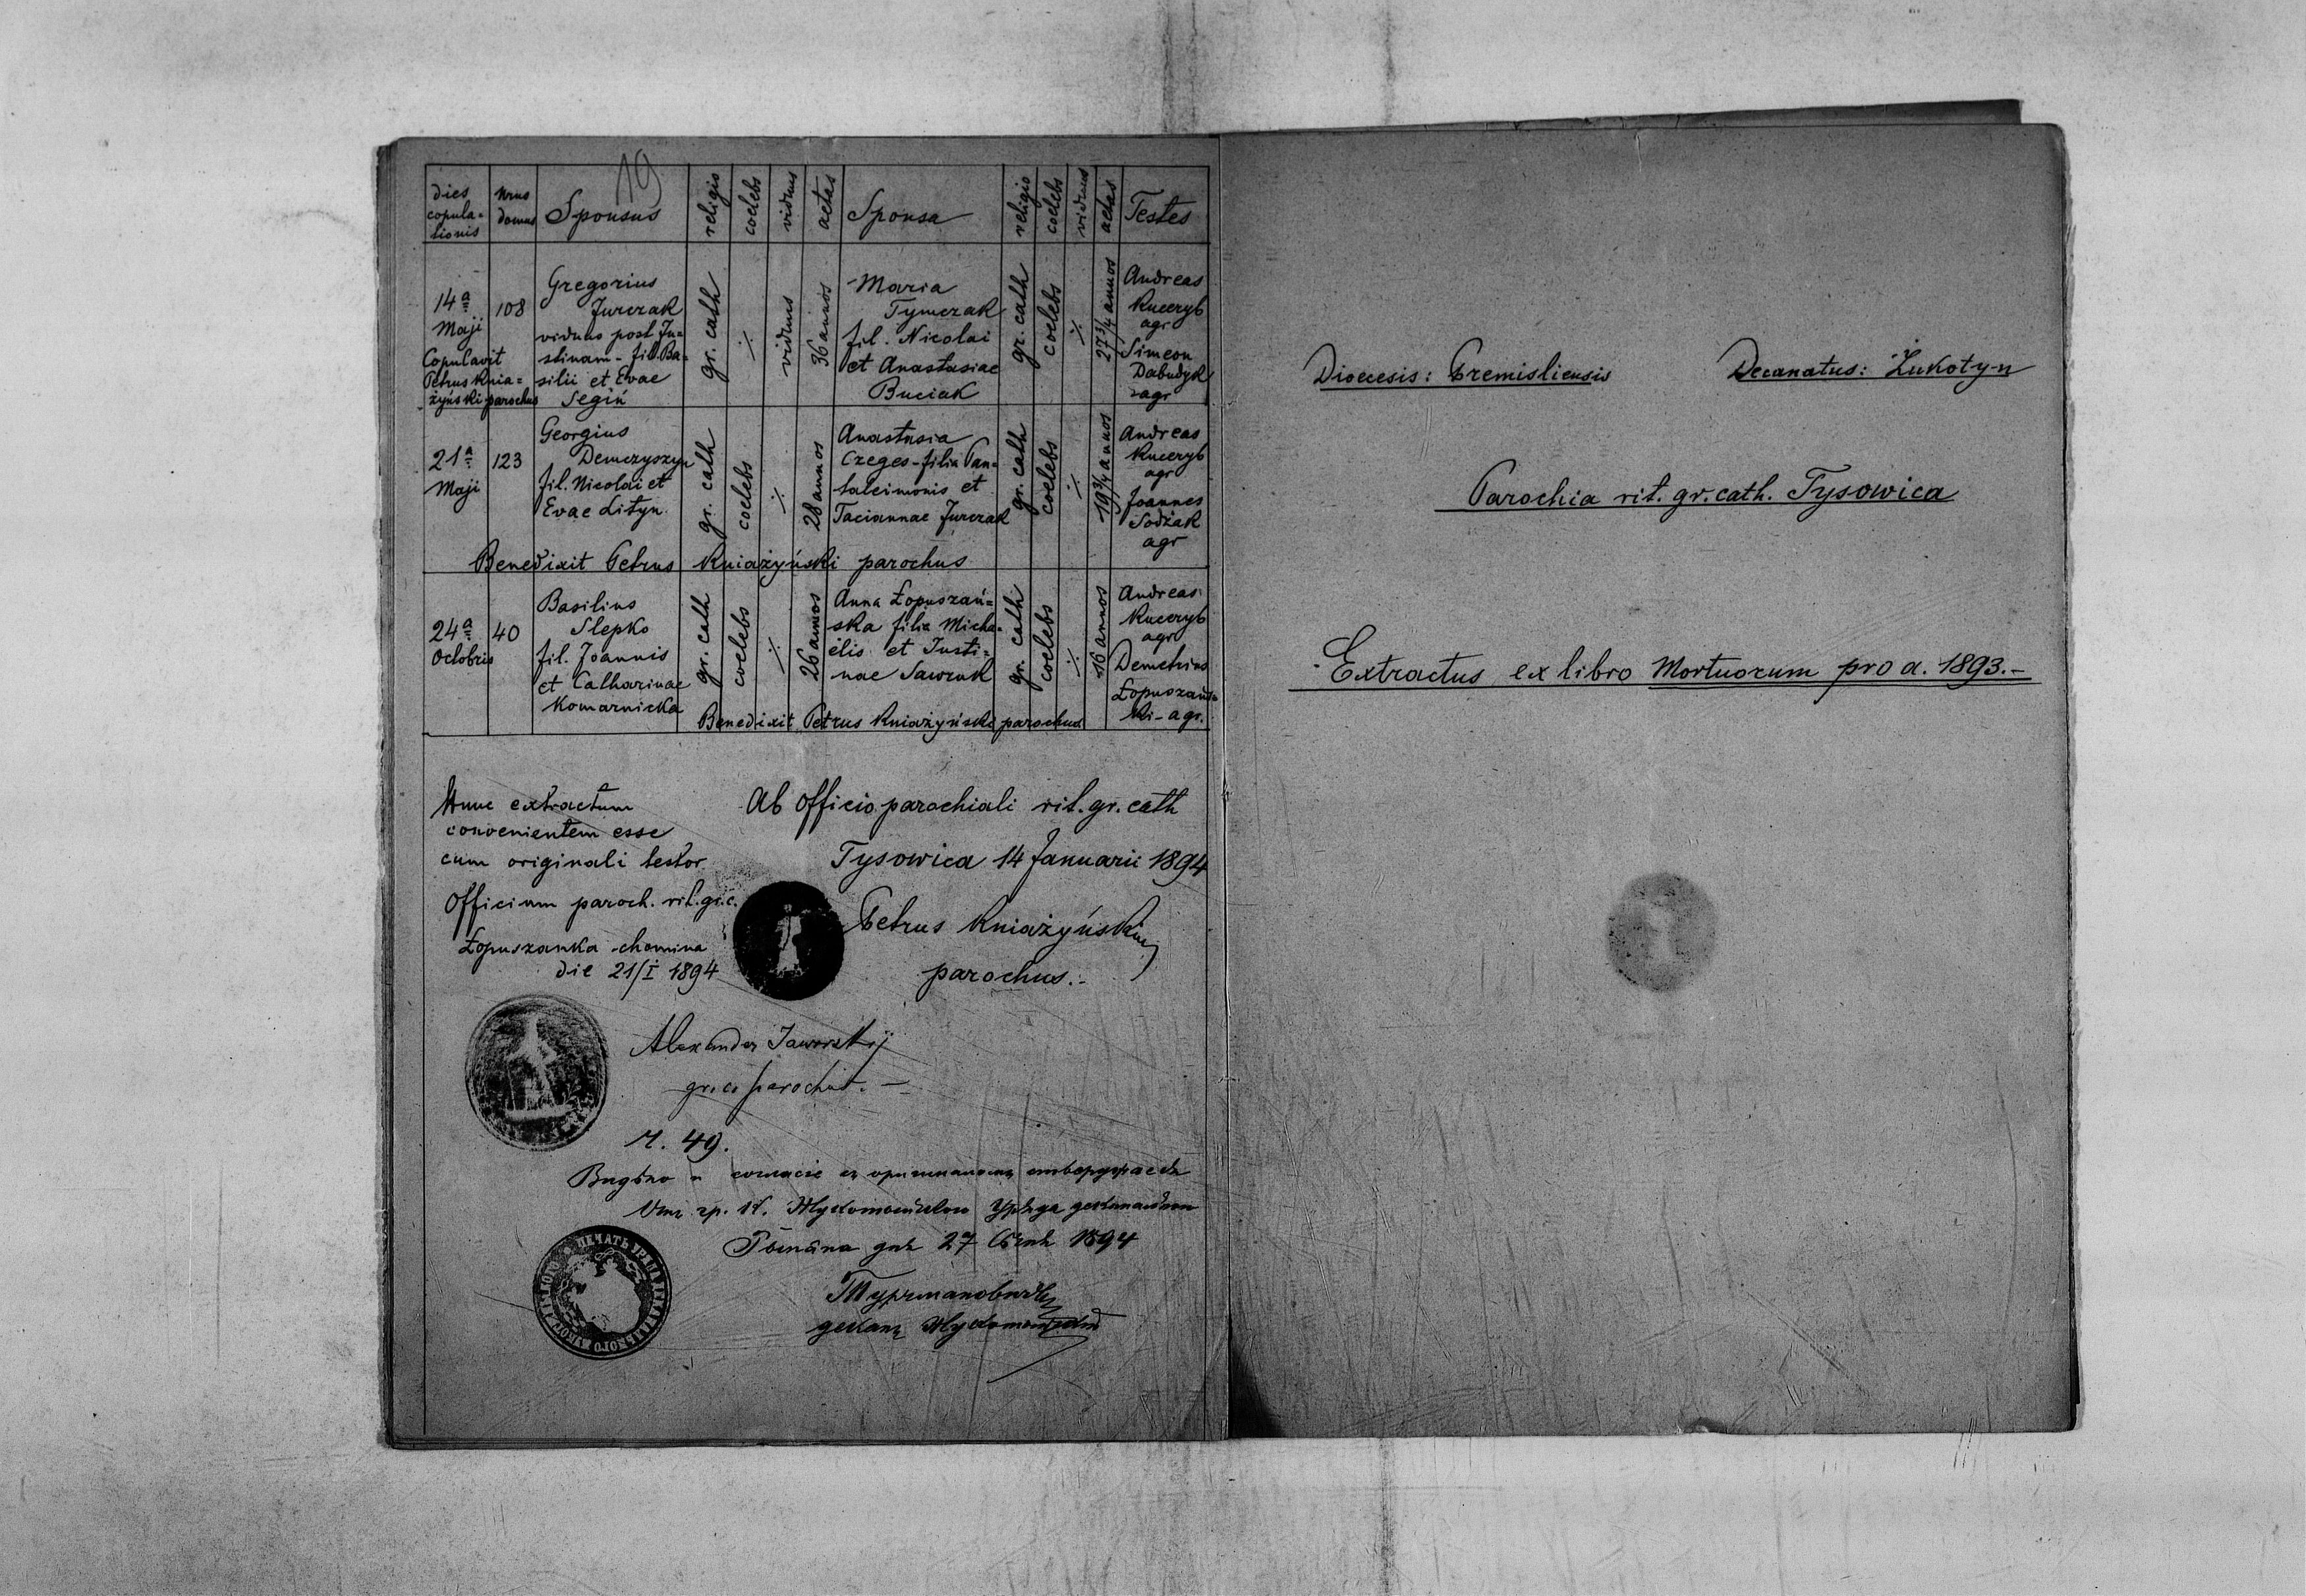 19
dies copula=tionis
Nrus domus
Sponsus
religio
coelebs
viduus
aetas
Sponsa
religio
coelebs
viduus
aetas
Testes
14a
Maji
Copulavit
Petrus Knia=
żyński parochus
108
Gregorius
Jurczak
viduus post Ju=
stinam - fil. Ba=
silii et Evae
Segiń
gr. cath
·/.
viduus
36 annos
Maria
Tymczak
fil. Nicolai
et Anastasiae
Buciak
gr. cath
coelebs
·/.
27 3/4 annos
Andreas
Kuceryb
agr
Simeon
Dabudyk
agr
21a
Maji
123
Georgius
Demczyszyn
fil. Nicolai et
Evae Lityn
gr. cath
coelebs
·/.
28 annos
Anastasia
Czeges - filia Pan=
taleimonis et
Taciannae Jurczak
gr. cath
coelebs
·/.
19 3/4 annos
Andreas
Kuceryb
agr
Joannes
Sodżak
agr
Benedixit Petrus Kniażyński parochus
24a
Octobris
40
Basilius
Slepko
fil. Joannis
et Catharinae
Komarnicka
gr. cath
coelebs
·/.
26 annos
Anna Łopuszań=
ska filia Micha=
elis et Justi=
nae Sawruk
gr. cath
coelebs
·/.
16 annos
Andreas
Kuceryb
agr
Demetrius
Łopuszańs=
ki - agr.
Benedixit Petrus Kniażyński parochus
Hunc extractum
convenientem esse
cum originali testor
Officium paroch. rit. gr. c.
Łopuszanka - chomina
die 21/I 1894
Ab officio parochiali rit. gr. cath
Tysowica 14 Januarii 1894
Petrus Kniażyński
parochus.-
Alexander Jaworskij
gr. c. parochus. -
Ч. 49.
Видѣно и согласіе съ оригиналомъ
Отъ гр. к.
дня 27 Сѣчня 1894
деканъ
ПЕЧАТЬ
Dioecesis: Premisliensis
Decanatus: Żukotyn
Parochia rit. gr. cath. Tysowica
Extractus ex libro Mortuorum pro a. 1893.-